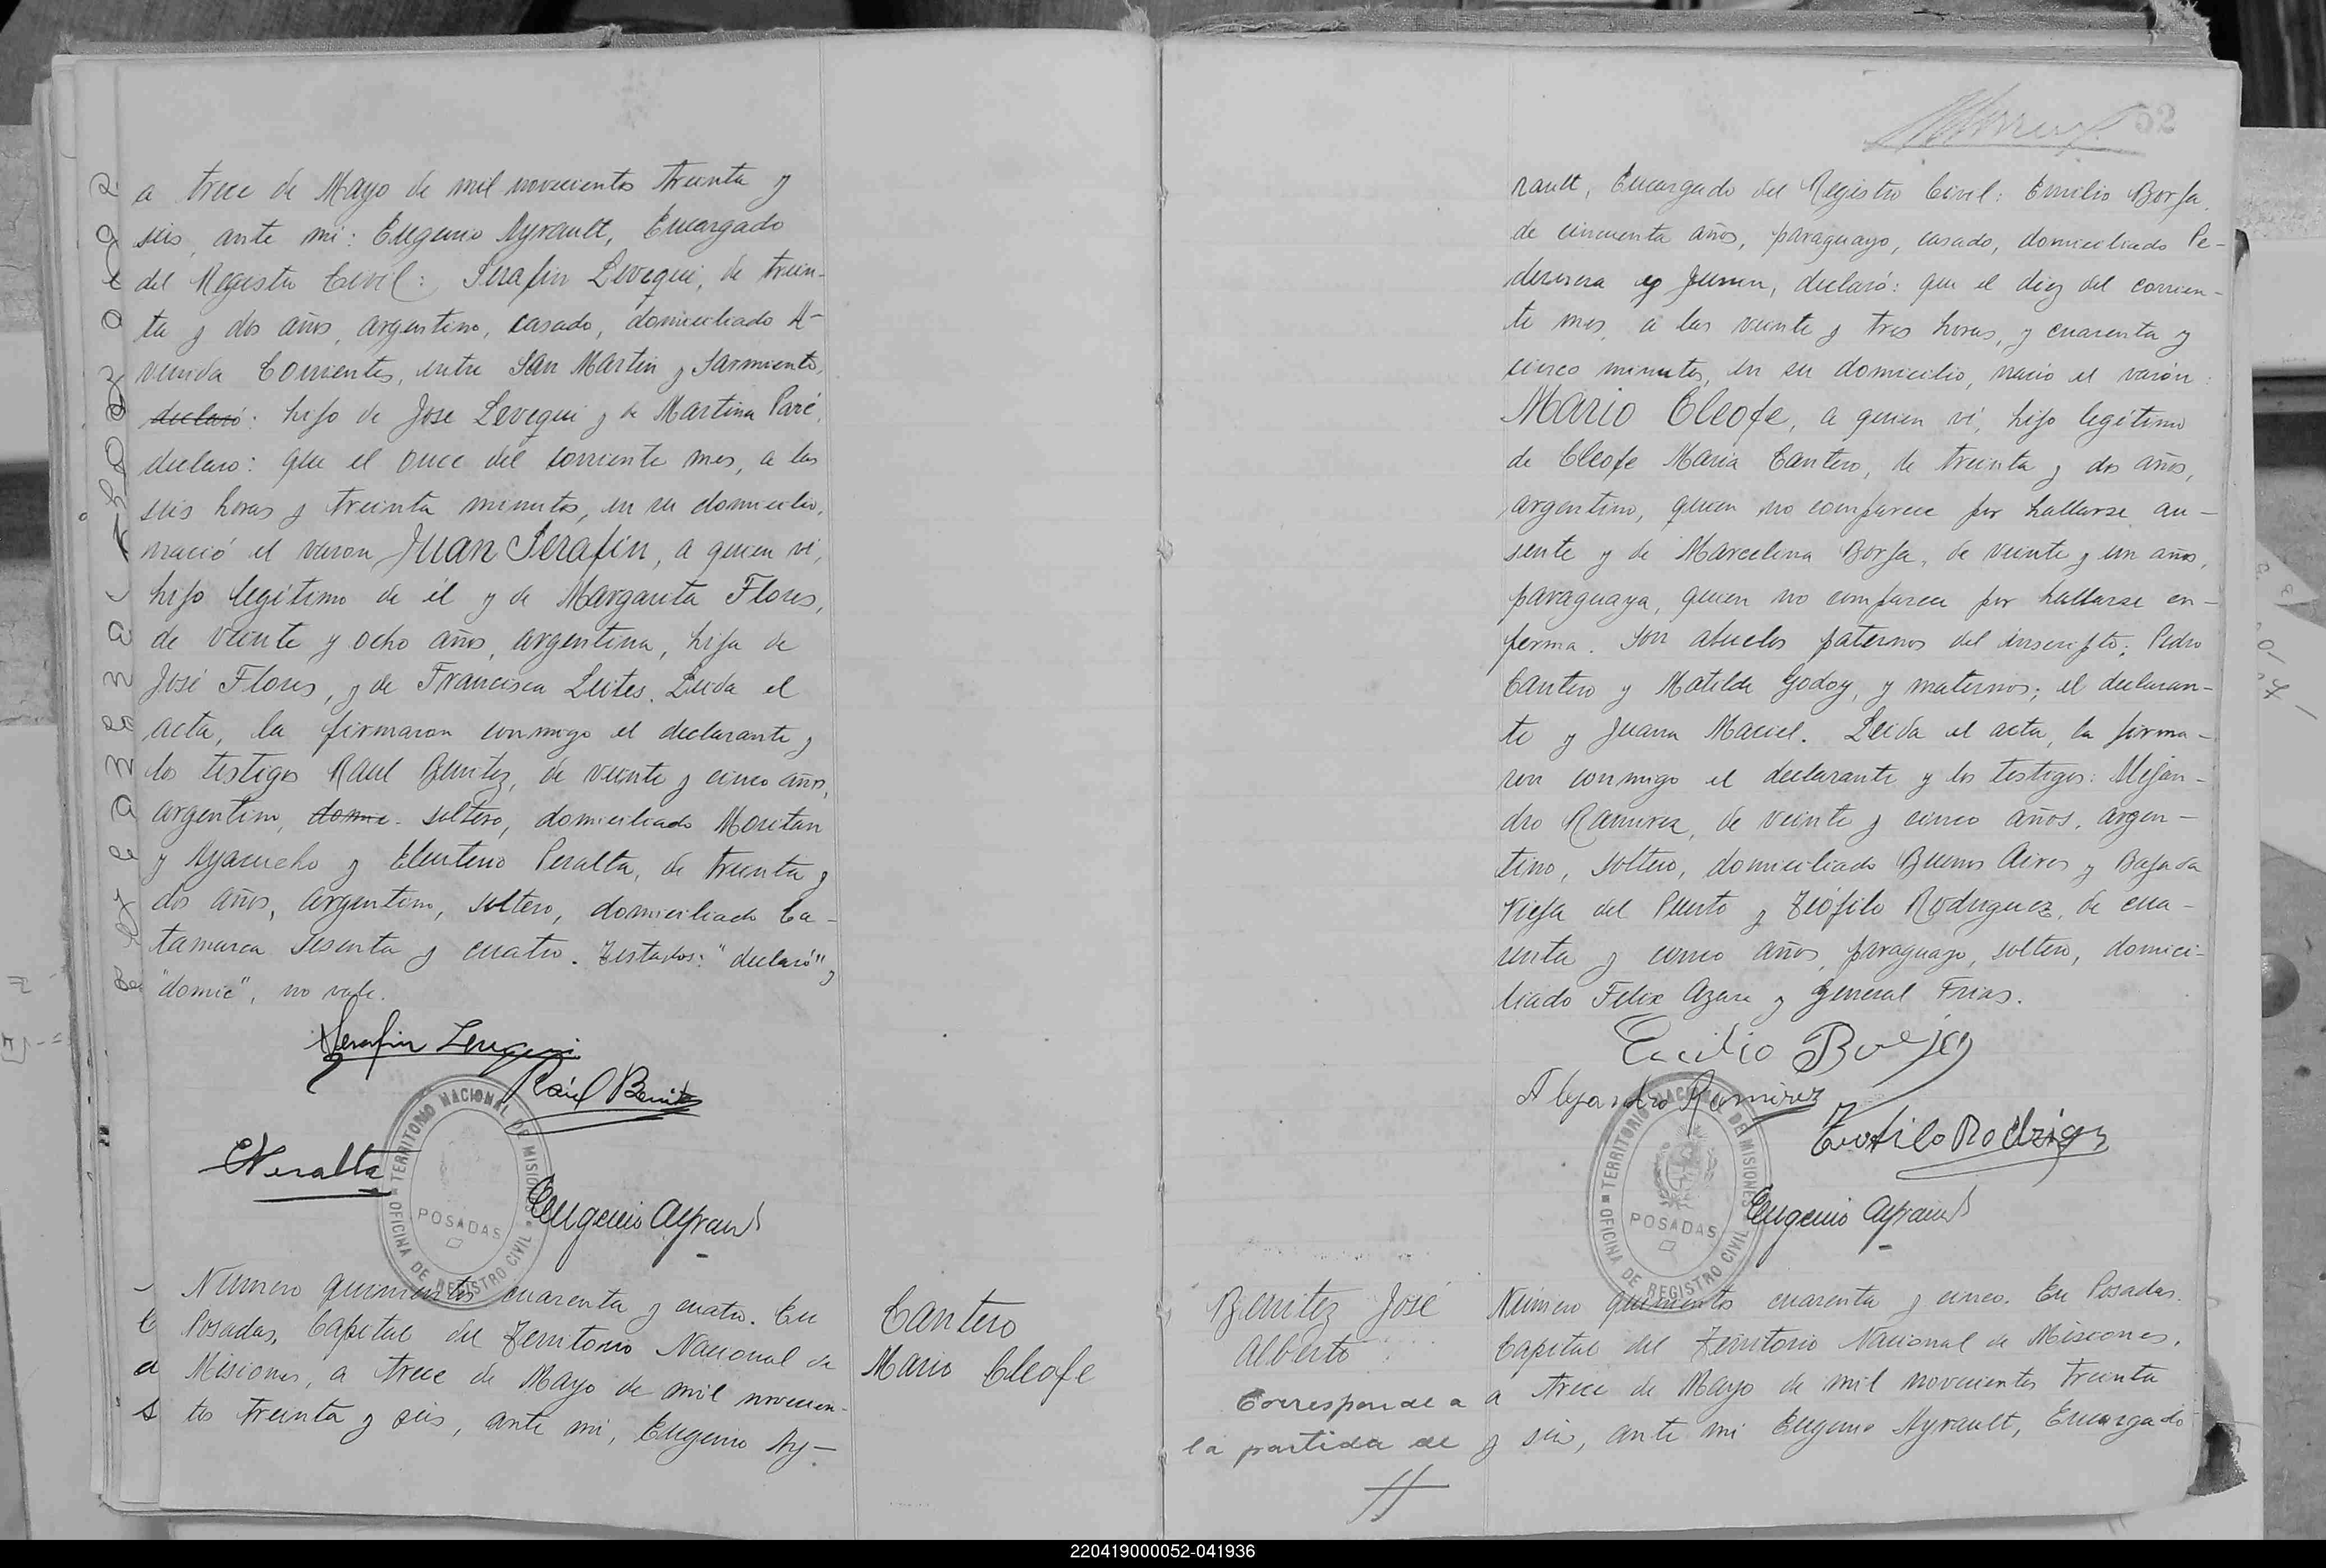 a trece de Mayo de mil novecientos treinta y
seis, ante mi: Eugenio Ayrault, Encargado
del Registro Civil: Serafin Levequi, de trein-
ta y dos años, argentino, casado, domiciliado A-
venida Corrientes, entre San Martin y Sarmiento,
declaró: hijo de Jose Levequi y de Martina Paré,
declaro: que el once del corriente mes, a las
seis horas y treinta minutos, en su domicilio,
nació el varon Juan Serafin, a quien vi,
hijo legítimo de él y de Margarita Flores,
de veinte y ocho años, argentina, hija de
José Flores, y de Francisca Leites. Leida el
acta, la firmaron conmigo el declarante y
los testigos Raul Benitez, de veinte y cinco años,
argentino, domic- soltero, domiciliado Moritan
y Ayacucho y Eleuterio Peralta, de treinta y
dos años, argentino, soltero, domiciliado Ca-
tamarca sesenta y cuatro. Testados: "declaró" y
"domic", no vale.
Serafin Levequi
Raúl Benitez
EPeralta
TERRITORIO NACIONAL DE MISIONES
POSADAS
OFICINA DE REGISTRO CIVIL
Eugenio Ayrault
Número quinientos cuarenta y cuatro. En
Posadas, Capital del Territorio Nacional de
Misiones, a trece de Mayo de mil novecien-
tos treinta y seis, ante mi, Eugenio Ay-
Cantero
Mario Cleofe
52
rault, Encargado del Registro Civil: Emilio Borja,
de cincuenta años, paraguayo, casado, domiciliado Pe-
dernera y Junin, declaró: que el diez del corrien-
te mes, a las veinte y tres horas, y cuarenta y
cinco minutos, en su domicilio, nació el varón:
Mario Cleofe, a quien vi, hijo legítimo
de Cleofe Maria Cantero, de treinta y dos años,
argentino, quien no comparece por hallarse au-
sente y de Marcelina Borja, de veinte y un años,
paraguaya, quien no comparece por hallarse en-
ferma. Son abuelos paternos del inscripto; Pedro
Cantero y Matilde Godoy, y maternos; el declaran-
te y Juana Maciel. Leida el acta, la firma-
ron conmigo el declarante y los testigos: Alejan-
dro Ramirez, de veinte y cinco años, argen-
tino, soltero, domiciliado Buenos Aires y Bajada
Vieja del Puerto y Teófilo Rodriguez, de cua-
renta y cinco años, paraguayo, soltero, domici-
liado Felix Azara y General Frias.
Emilio Borja
Alejandro Ramirez
Teofilo Rodrigez
TERRITORIO NACIONAL DE MISIONES
POSADAS
OFICINA DE REGISTRO CIVIL
Eugenio Ayrault
Benitez José
Alberto
Corresponde a
la partida de
Número quinientos cuarenta y cinco. En Posadas.
Capital del Territorio Nacional de Misiones,
a trece de Mayo de mil novecientos treinta
y seis, ante mi Eugenio Ayrault, Encargado
220419000052-041936